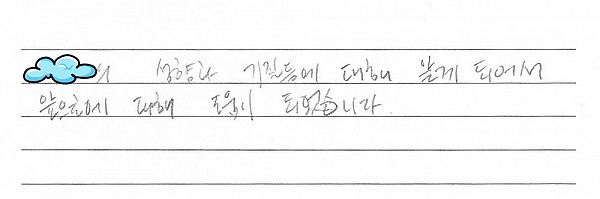 의 성향과 기질등에 대해 알게 되어서
앞으로에 대해 도움이 되었습니다.